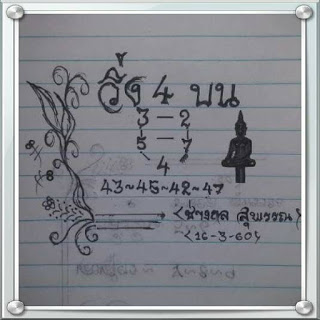 วิ่ง 4 บน
3 - 2
5 - 7
4
43~45~42~47
<ช่างดล สุพรรณ>
<16-3-60>